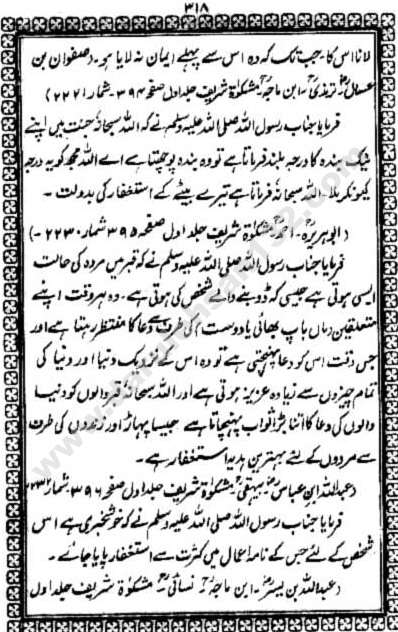 ۳۱۸
لانا اس کا۔ جب تک کہ وہ اس سے پہلے ایمان نہ لایا ہو۔ (صفوان بن
عسال۔ ترمذی۔ ابن ماجہ۔ مشکوٰۃ شریف جلد اول صفحہ ۳۹۴۔ شمار ۲۲۲۱)
فرمایا جناب رسول اللہ صلی اللہ علیہ وسلم نے کہ اللہ سبحانہٗ جنت میں اپنے
نیک بندہ کا درجہ بلند فرماتا ہے تو وہ بندہ پوچھتا ہے اے اللہ مجھ کو یہ درجہ
کیونکر ملا۔ اللہ سبحانہٗ فرماتا ہے تیرے بیٹے کے استغفار کی بدولت۔
(ابوہریرہؓ۔ احمد۔ مشکوٰۃ شریف جلد اول صفحہ ۳۹۵ شمار ۲۲۳۰۔)
فرمایا جناب رسول اللہ صلی اللہ علیہ وسلم نے کہ قبر میں مردہ کی حالت
ایسی ہوتی ہے جیسی کہ ڈوبنے والے شخص کی ہوتی ہے۔ وہ ہر وقت اپنے
متعلقین (ماں باپ بھائی یا دوست) کی طرف سے دعا کا منتظر رہتا ہے اور
جس وقت اس کو دعا پہنچتی ہے تو وہ اس کے نزدیک دنیا اور دنیا کی
تمام چیزوں سے زیادہ عزیز ہوتی ہے اور اللہ سبحانہٗ قبر والوں کو دنیا
والوں کی دعا کا اتنا بڑا ثواب پہنچاتا ہے جیسا پہاڑ اور زندوں کی طرف
سے مردوں کے لئے بہترین ہدیہ استغفار ہے۔
(عبداللہ ابن عباسؓ۔ بیہقی۔ مشکوٰۃ شریف جلد اول صفحہ ۳۹۶۔ شمار ۲۲۳۲
فرمایا جناب رسول اللہ صلی اللہ علیہ وسلم نے کہ خوشخبری ہے اس
شخص کے لئے جس کے نامۂ اعمال میں کثرت سے استغفار پایا جائے۔
(عبداللہ بن بسرؓ۔ ابن ماجہ۔ نسائی۔ مشکوٰۃ شریف جلد اول